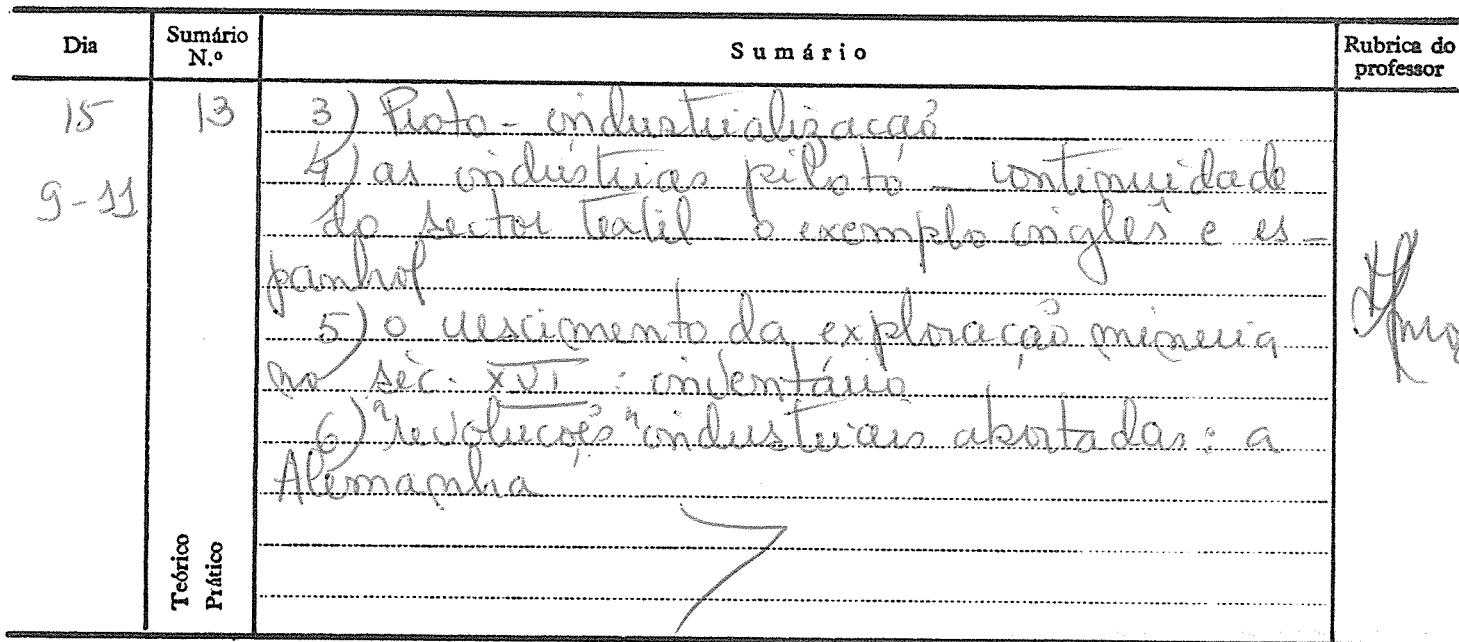 Dia
Sumário N.º
Sumário
Rubrica do professor
15
13
9-11
3) Proto-industrialização
4) as indústrias piloto - continuidade
do sector textil o exemplo inglês e es-
panhol
5) o crescimento da exploração mineira
no séc. XVI : inventário
6) "revoluções" industriais abortadas: a
Alemanha
Teórico
Prático